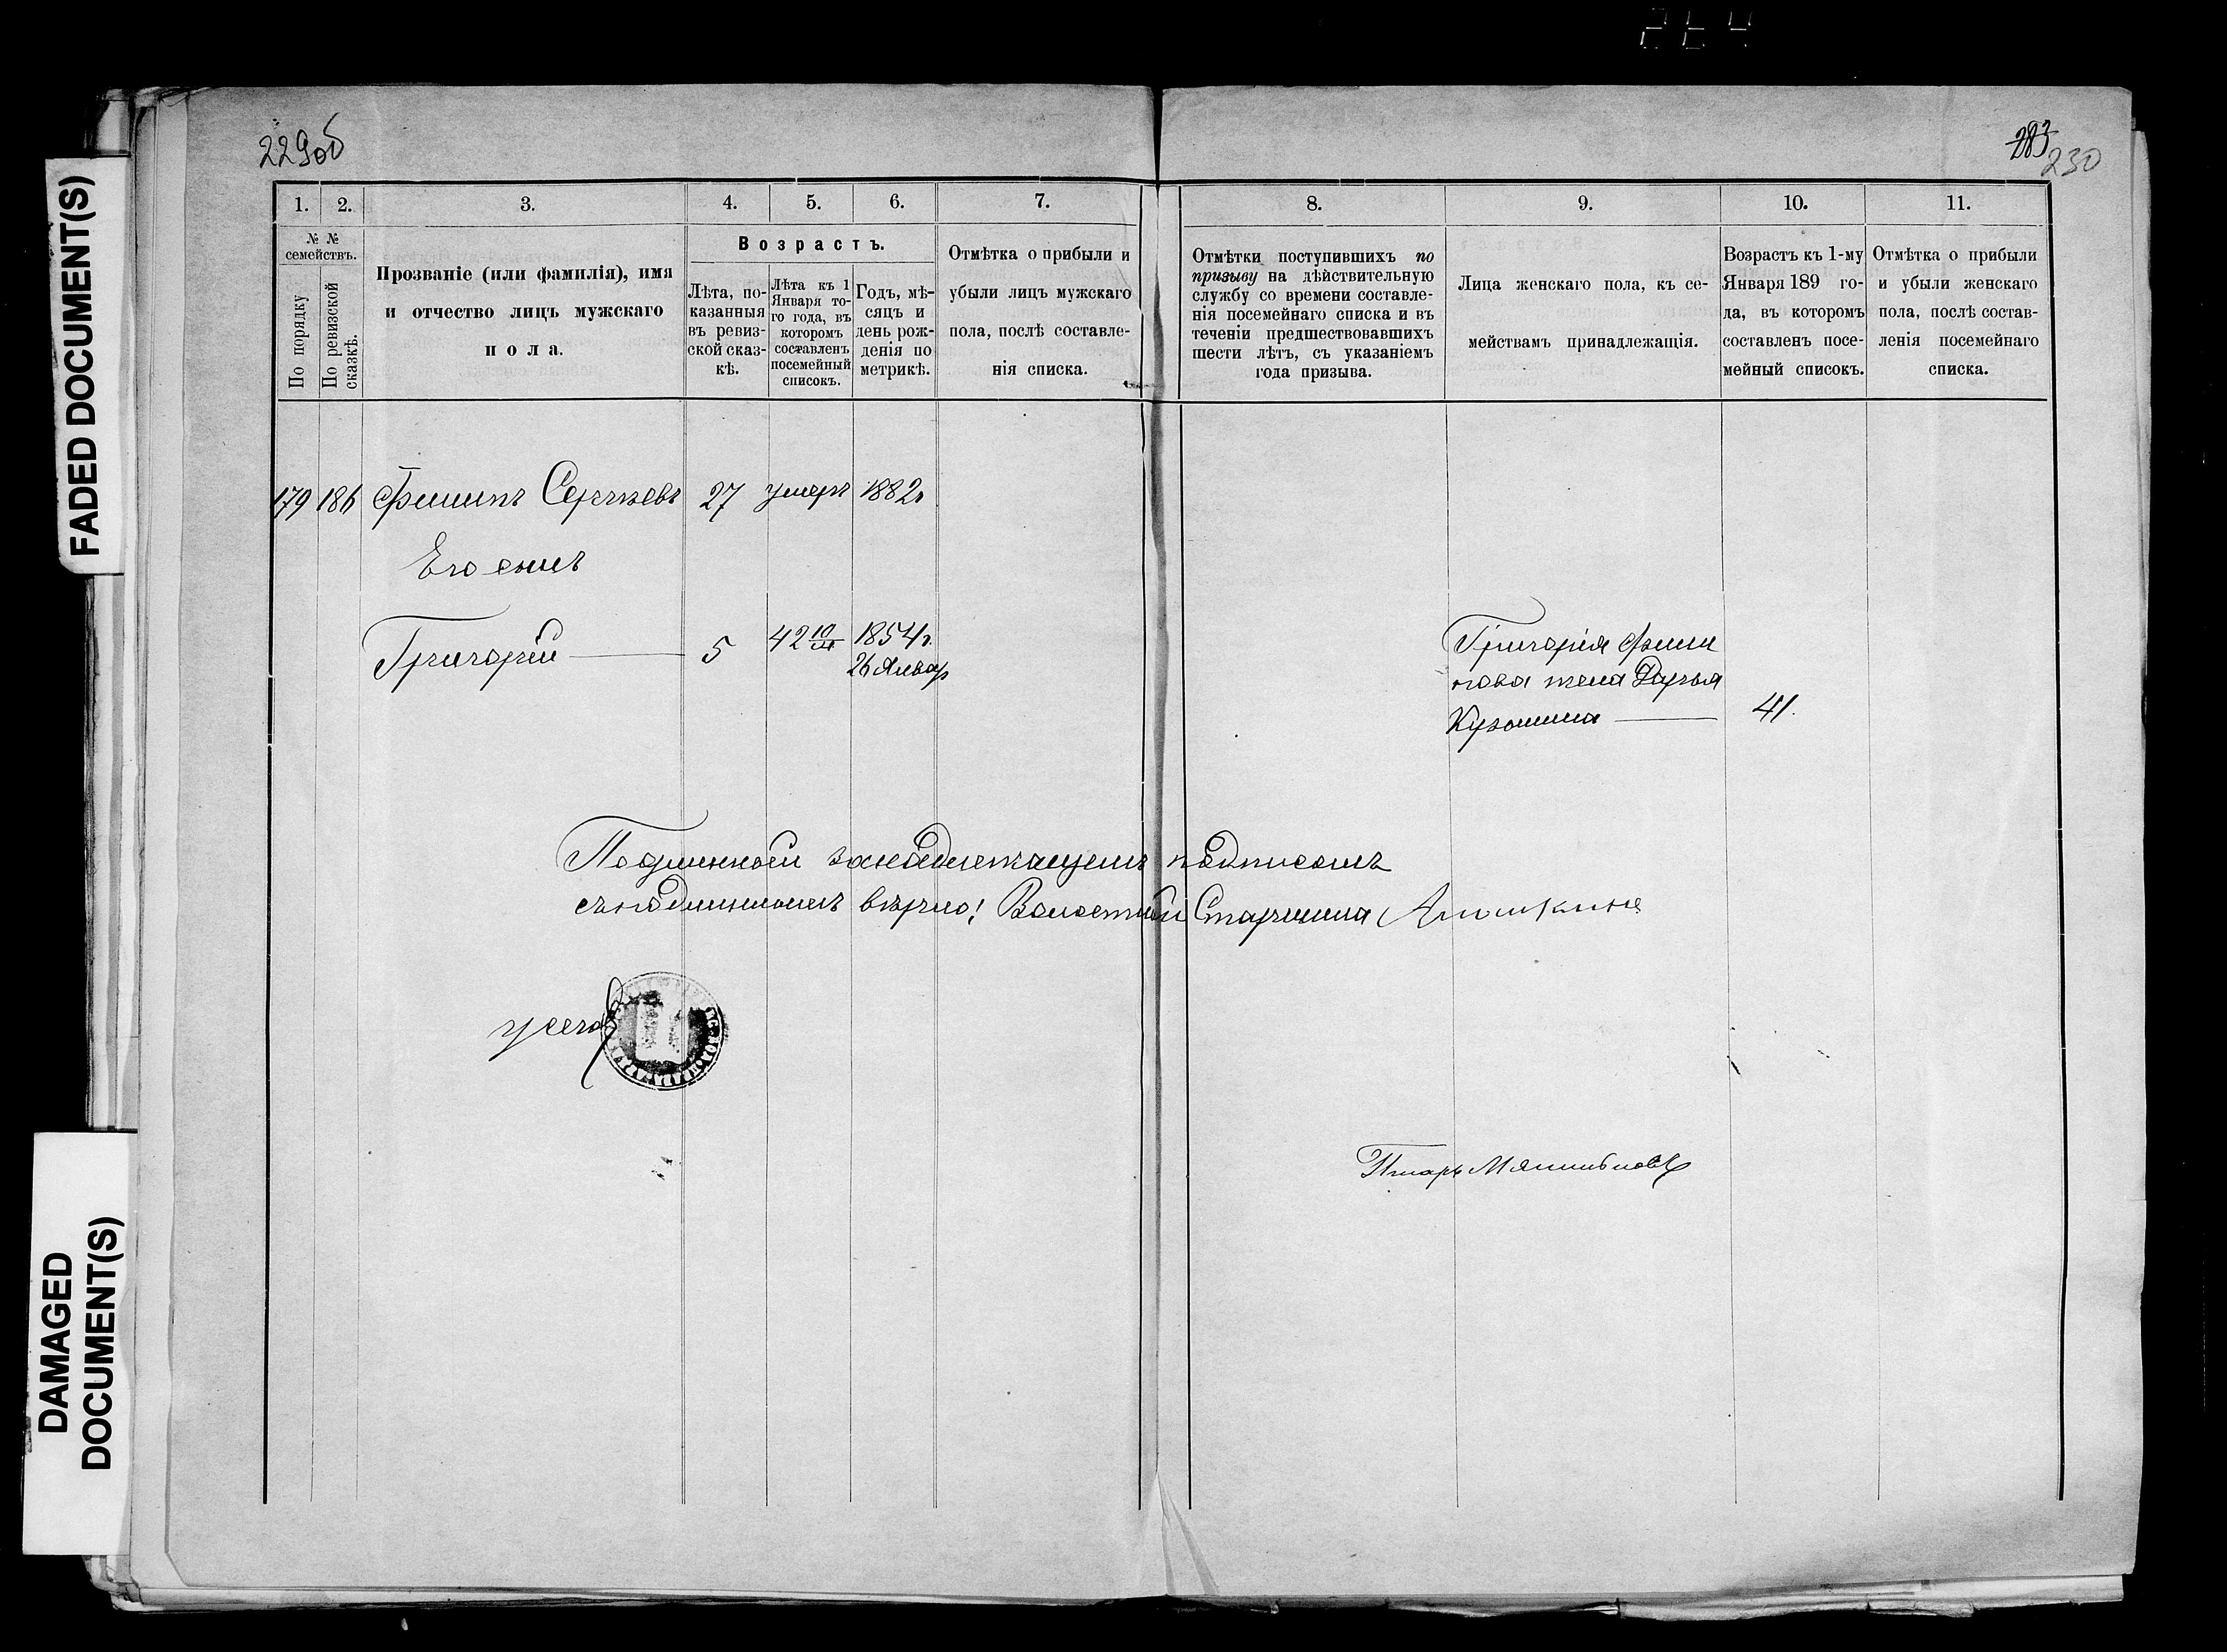 264
229об
283
230
FADED DOCUMENT(S)
DAMAGED
DOCUMENT(S)
1. 2. 3. 4. 5. 6. 7. 8. 9. 10. 11.
№ №
семействъ.
По порядку
По ревизской
сказкѣ.
Прозваніе (или фамилія), имя
и отчество лицъ мужскаго
пола.
Возрастъ.
Лѣта, по-
казанныя
въ ревиз-
ской сказ-
кѣ.
Лѣта къ 1
Января то-
го года, въ
которомъ
составленъ
посемейный
списокъ.
Годъ, мѣ-
сяцъ и
день рож-
денія по
метрикѣ.
Отмѣтка о прибыли и
убыли лицъ мужскаго
пола, послѣ составле-
нія списка.
Отмѣтки поступившихъ по
призыву на дѣйствительную
службу со времени составле-
нія посемейнаго списка и въ
теченіи предшествовавшихъ
шести лѣтъ, съ указаніемъ
года призыва.
Лица женскаго пола, къ се-
мействамъ принадлежащія.
Возрастъ къ 1-му
Января 189 го-
да, въ которомъ
составленъ посе-
мейный списокъ.
Отмѣтка о прибыли
и убыли женскаго
пола, послѣ состав-
ленія посемейнаго
списка.
179 186 Филипъ Сергѣевъ 27 умеръ 1882г
Его сынъ
Григорій 5 42 1854г.
26 Январ
Григорія Фили
пова жена Дарья
Кузьмина 41.
Подлинной за надлежащемъ подписомъ
съ подлиннымъ вѣрно! Волостной Старшина
Писарь